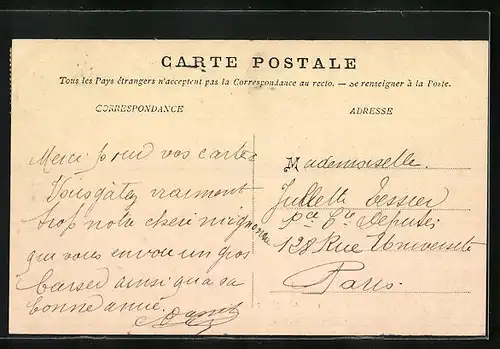 CARTE POSTALE
Tous les Pays étrangers n'acceptent pas la Correspondance au recto. — Se renseigner à la Poste.
CORRESPONDANCE
ADRESSE
Merci pour vos cartes
Vous gâtez vraiment
trop notre cheri mignonne
que vous envoi un gros
baiser ainsi qua sa
bonne amie.
Mademoiselle.
Juliette Tessier
Députés
128 Rue Université
Paris.